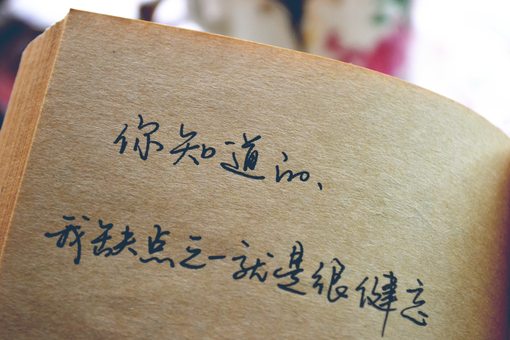 你知道的、
我缺点之一就是很健忘